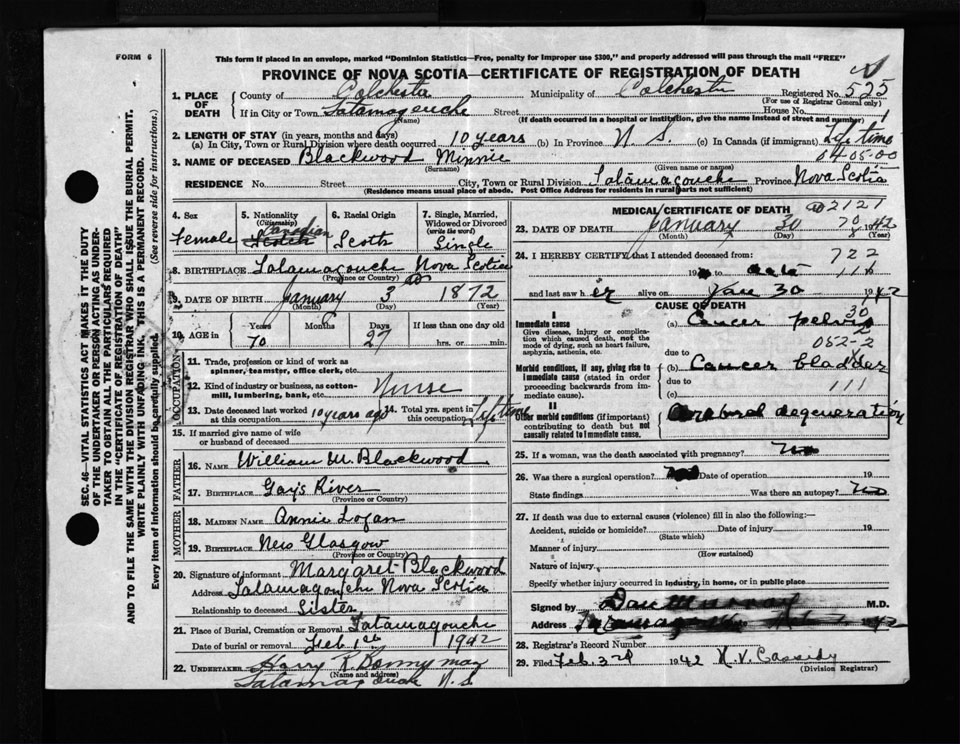 FORM 6
This form if placed in an envelope, marked "Dominion Statistics—Free, penalty for improper use $300," and properly addressed will pass through the mail "FREE"
PROVINCE OF NOVA SCOTIA—CERTIFICATE OF REGISTRATION OF DEATH
1. PLACE OF DEATH
County of Colchester Municipality of Colchester Registered No. 525
(For use of Registrar General only)
If in City or Town Tatamagouche Street House No.
(Name) (If death occurred in a hospital or institution, give the name instead of street and number)
2. LENGTH OF STAY (in years, months and days)
(a) In City, Town or Rural Division where death occurred 10 years (b) In Province N.S. (c) In Canada (if immigrant) Life time
04-05-00
3. NAME OF DECEASED Blackwood Minnie
(Surname) (Given name or names)
RESIDENCE No. Street City, Town or Rural Division Tatamagouche Province Nova Scotia
(Residence means usual place of abode. Post Office Address for residents in rural parts not sufficient)
4. Sex
Female
5. Nationality (Citizenship)
Canadian
Scotch
6. Racial Origin
Scotch
7. Single, Married, Widowed or Divorced (write the word)
Single
8. BIRTHPLACE Tatamagouche Nova Scotia
(Province or Country)
9. DATE OF BIRTH January 3 1872
(Month) (Day) (Year)
10. AGE in Years Months Days If less than one day old
70 27 hrs. or min.
OCCUPATION
11. Trade, profession or kind of work as spinner, teamster, office clerk, etc.
12. Kind of industry or business, as cotton-mill, lumbering, bank, etc. Nurse
13. Date deceased last worked at this occupation 10 years ago 14. Total yrs. spent in this occupation Life time
15. If married give name of wife or husband of deceased
FATHER
16. NAME William M. Blackwood
17. BIRTHPLACE Gays River
(Province or Country)
MOTHER
18. MAIDEN NAME Annie Logan
19. BIRTHPLACE New Glasgow
(Province or Country)
20. Signature of informant Margaret Blackwood
Address Tatamagouche Nova Scotia
Relationship to deceased Sister
21. Place of Burial, Cremation or Removal Tatamagouche
Date of burial or removal Feb 1st 1942
22. UNDERTAKER Harry R. Bonnyman
(Name and address)
Tatamagouche N.S.
MEDICAL CERTIFICATE OF DEATH 2121
23. DATE OF DEATH January 30 1942
(Month) (Day)
24. I HEREBY CERTIFY that I attended deceased from: 722
19 date
and last saw her alive on Jan 30 1942
CAUSE OF DEATH
I
Immediate cause (a) Cancer pelvis
Give disease, injury or complication which caused death, not the mode of dying, such as heart failure, asphyxia, asthenia, etc.
052-2
due to
Morbid conditions, if any, giving rise to immediate cause (stated in order proceeding backwards from immediate). (b) Cancer bladder
due to
(c)
II
Other morbid conditions (if important) contributing to death but not causally related to immediate cause. Cerebral degeneration
25. If a woman, was the death associated with pregnancy? No
26. Was there a surgical operation? Date of operation 19
State findings Was there an autopsy? No
27. If death was due to external causes (violence) fill in also the following:—
Accident, suicide or homicide? Date of injury 19
(State which)
Manner of injury
(How sustained)
Nature of injury
Specify whether injury occurred in industry, in home, or in public place
Signed by Dan Murray M.D.
Address
28. Registrar's Record Number
29. Filed Feb. 3rd 1942 H.V. Cassidy
(Division Registrar)
SEC. 46—VITAL STATISTICS ACT MAKES IT THE DUTY
OF THE UNDERTAKER OR PERSON ACTING AS UNDER-
TAKER TO OBTAIN ALL THE PARTICULARS REQUIRED
IN THE "CERTIFICATE OF REGISTRATION OF DEATH"
AND TO FILE THE SAME WITH THE DIVISION REGISTRAR WHO SHALL ISSUE THE BURIAL PERMIT.
WRITE PLAINLY WITH UNFADING INK. THIS IS A PERMANENT RECORD.
Every item of information should be carefully supplied. (See reverse side for instructions.)